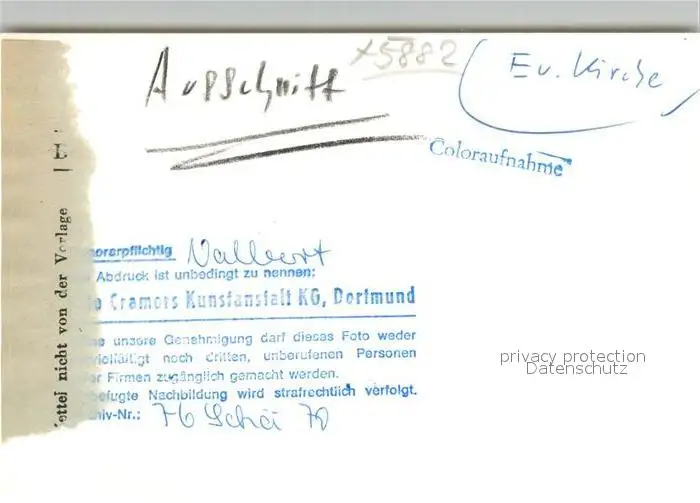 Ausschnitt
x5882
Ev. Kirche
Coloraufnahme
ettel nicht von der Vorlage
norarpflichtig Valbert
Abdruck ist unbedingt zu nennen:
o Cramers Kunstanstalt KG, Dortmund
ne unsere Genehmigung darf dieses Foto weder
vielfältigt noch dritten, unberufenen Personen
er Firmen zugänglich gemacht werden.
befugte Nachbildung wird strafrechtlich verfolgt.
hiv-Nr.: 76 Schä 70
privacy protection
Datenschutz